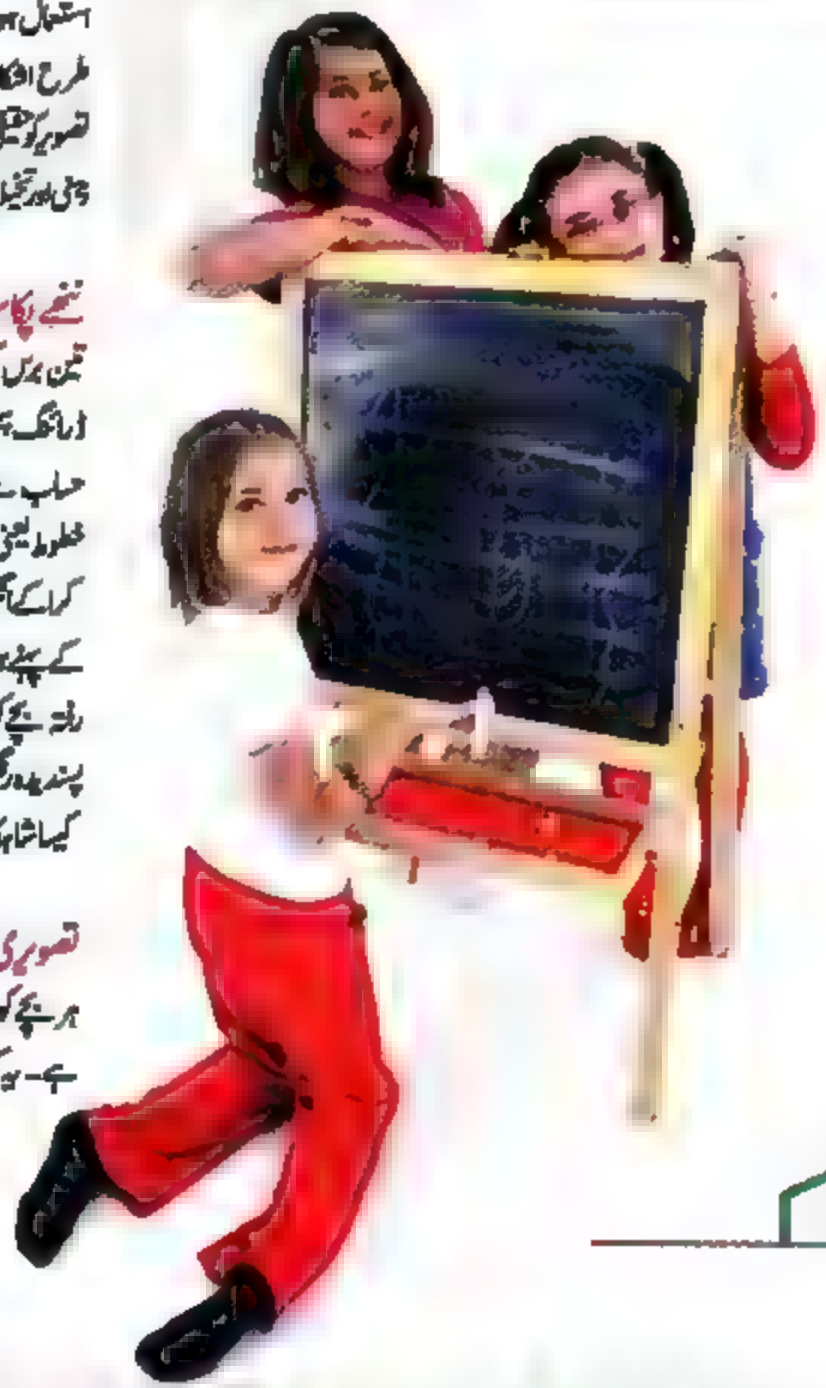 استعمال ہو
طرح اشکا
تصویر کو تخیل
ذہنی اور تخیل
ننھے پکا
تین برس
ڈرائنگ
حساب سے
خطوط یعنی
کرا کے
کے پہیے
رفتہ بچے کو
پسندیدہ رنگ
کیسا شاہکا
تصویری
ہر بچے کو
ہے۔ یہ